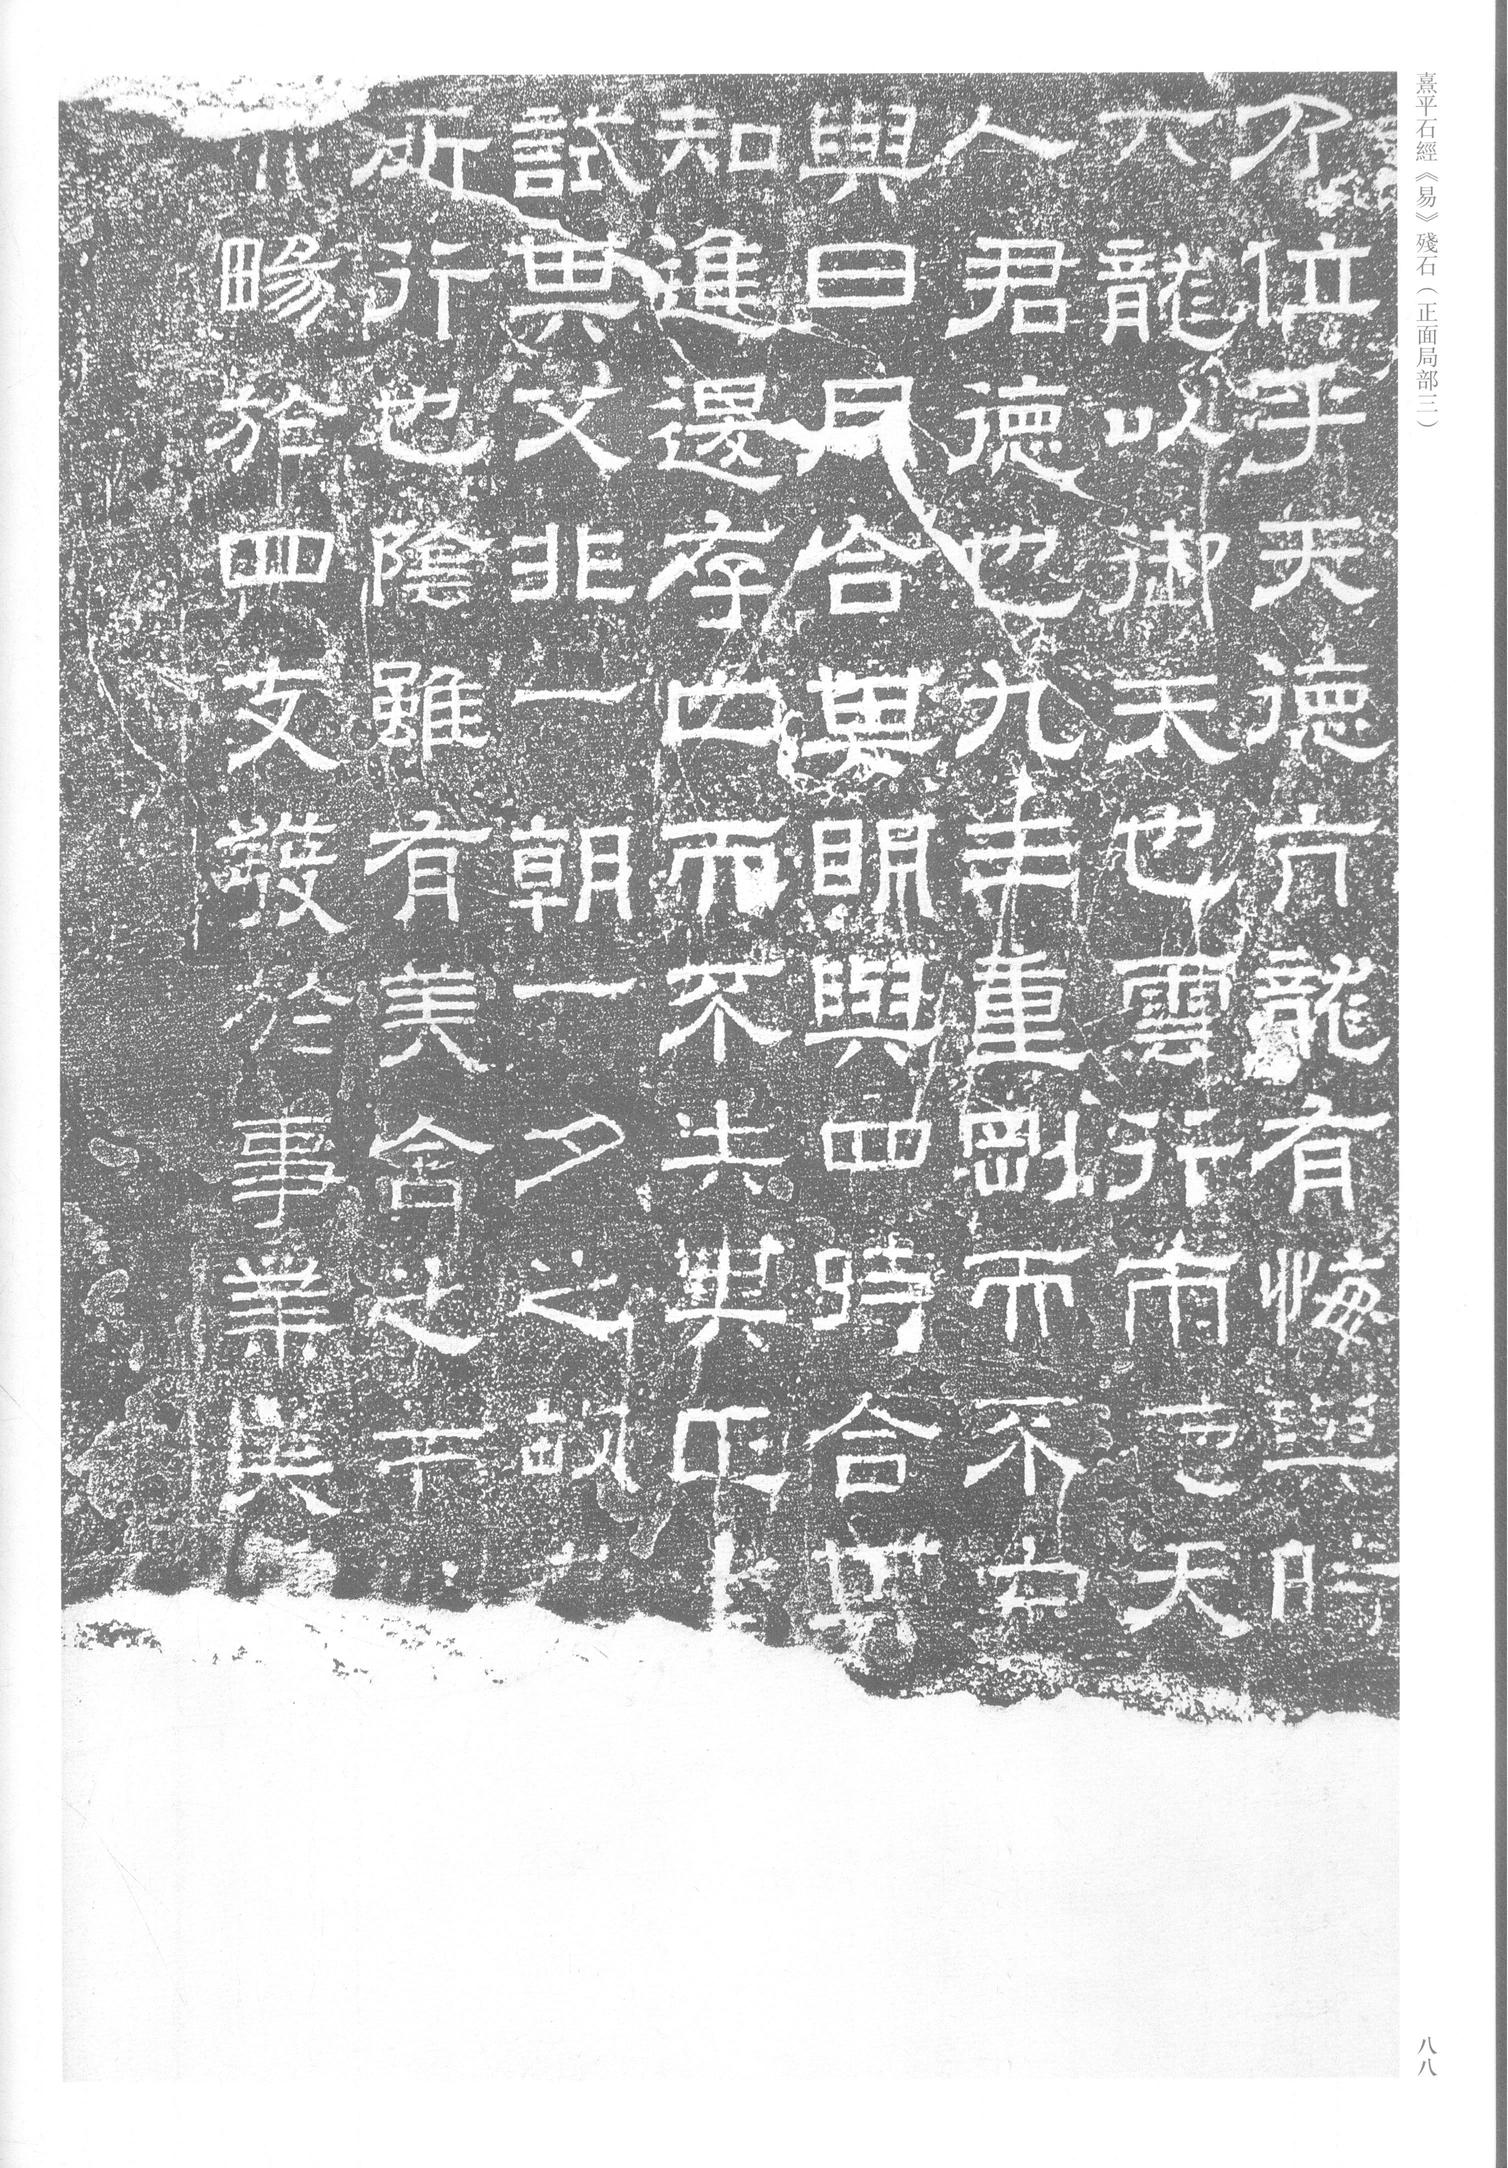 熹平石經《易》殘石（正面局部三）
乃位乎天德亢龍有悔與時
六龍以御天也雲行雨施天
人君德也九三重剛而不中
與日月合其明與四時合其
知進退存亡而不失其正
試其父非一朝一夕之故
所行也陰雖有美含之
暢於四支發於事業美
八八